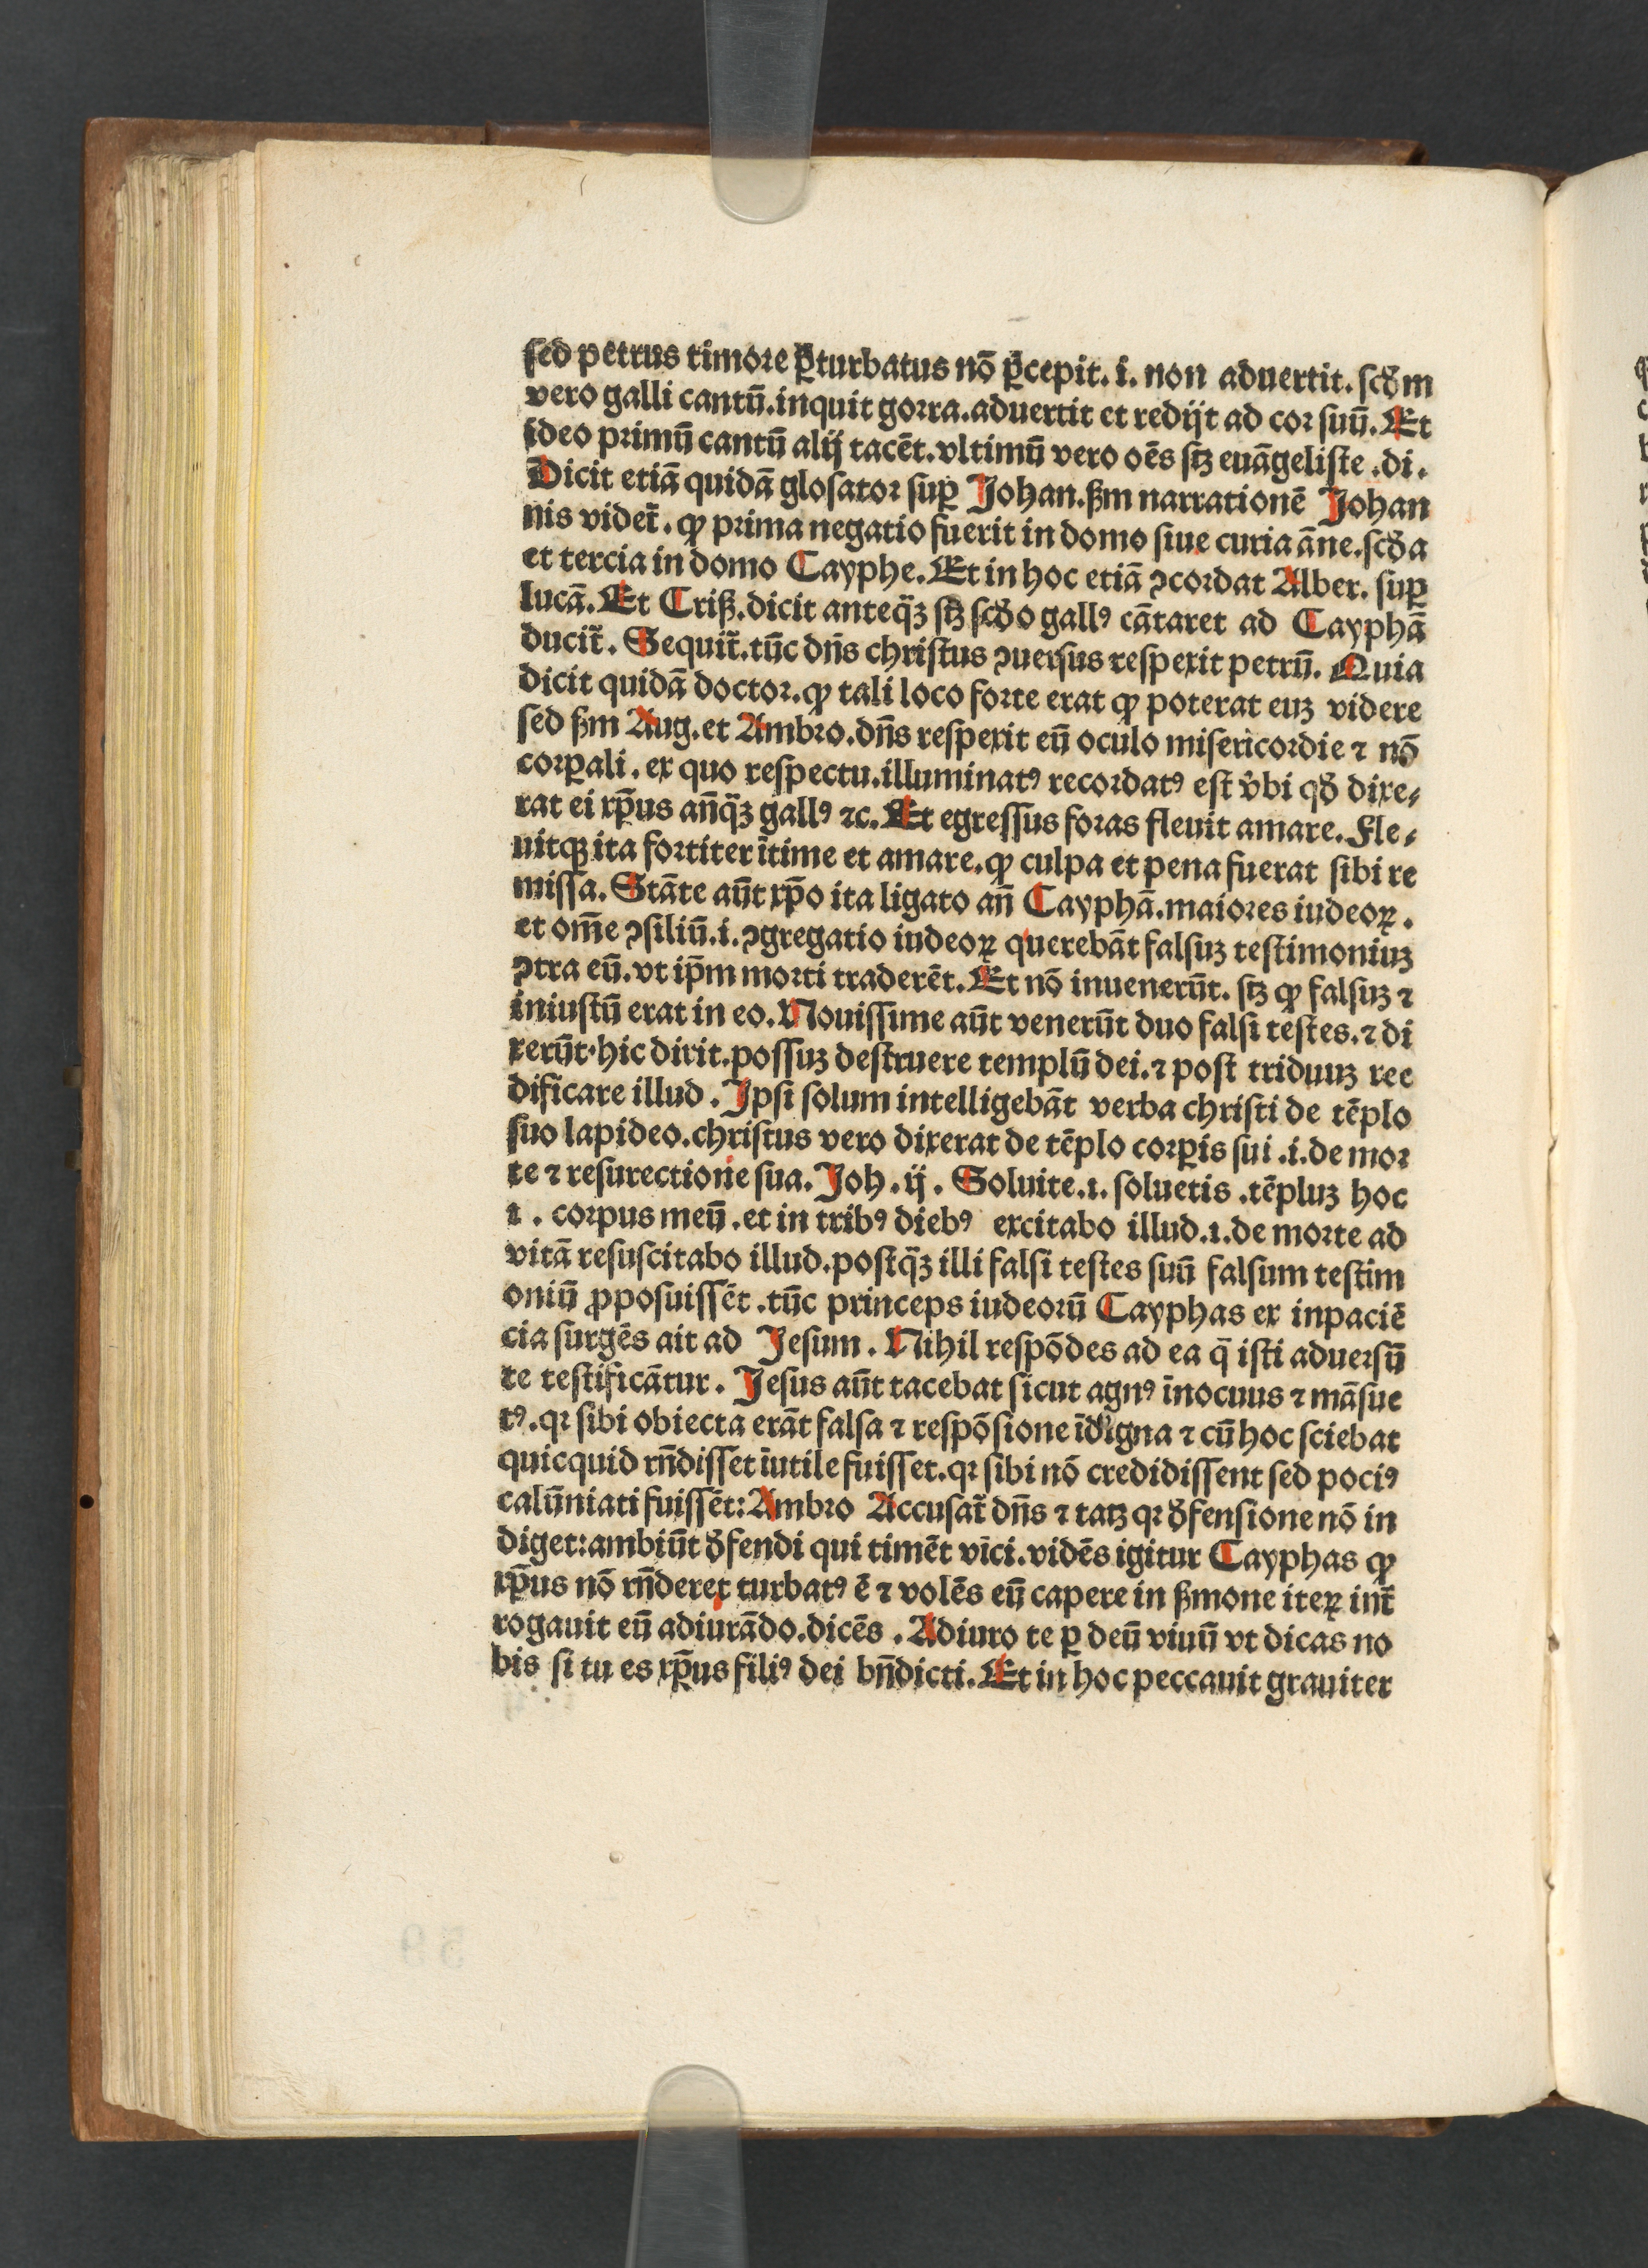 sed petrus timore ꝑturbatus nō ꝑcepit. i. non aduertit. scd̄m
vero galli cantū. inquit gorra. aduertit et redijt ad cor suū. Et
ideo primū cantū alij tacēt. vltimū vero oēs stꝫ euāgeliste .di.
Dicit etiā quidā glosator suꝑ Johan. ẞm narrationē Johan
nis videt̄. ꝙ prima negatio fuerit in domo siue curia āne. scd̄a
et tercia in domo Cayphe. Et in hoc etiā ꝯcordat Alber. suꝑ
lucā. Et Criß. dicit anteq̄ꝫ stꝫ scd̄o gallꝰ cātaret ad Cayphā
ducit̄. Sequit̄. tūc dn̄s christus ꝯuersus respexit petrū. Quia
dicit quidā doctor. ꝙ tali loco forte erat ꝙ poterat euꝫ videre
sed ẞm Aug. et Ambro. dn̄s respexit eū oculo misericordie ⁊ nō
corꝑali. ex quo respectu. illuminatꝰ recordatꝰ est v̄bi qd̄ dixe⸗
rat ei xp̄us an̄q̄ꝫ gallꝰ ⁊c. Et egressus foras fleuit amare. Fle⸗
uitqꝫ ita fortiter ītime et amare. ꝙ culpa et pena fuerat sibi re
missa. Stāte aūt xp̄o ita ligato an̄ Cayphā. maiores iudeoꝝ.
et om̄e ꝯsiliū. i. ꝯgregatio iudeoꝝ querebāt falsuꝫ testimoniuꝫ
ꝯtra eū. vt ip̄m morti traderēt. Et nō inuenerūt. stꝫ ꝙ falsuꝫ ⁊
iniustū erat in eo. Nouissime aūt venerūt duo falsi testes. ⁊ di
xerūt· hic dixit. possuꝫ destruere templū dei. ⁊ post triduuꝫ ree
dificare illud. Ipsi solum intelligebāt verba christi de tēplo
suo lapideo. christus vero dixerat de tēplo corꝑis sui .i. de mor
te ⁊ resurectione sua. Joh. ij. Soluite. ı. soluetis .tēpluꝫ hoc
ı. corpus meū. et in tribꝰ diebꝰ excitabo illud. ı. de morte ad
vitā resuscitabo illud. postq̄ꝫ illi falsi testes suū falsum testim
oniū ꝓposuissēt. tūc princeps iudeorū Cayphas ex inpaciē
cia surgēs ait ad Jesum. Nihil respōdes ad ea q̄ isti aduersū
te testificātur. Jesus aūt tacebat sicut agnꝰ īnocuus ⁊ māsue
tꝰ. qꝛ sibi obiecta erāt falsa ⁊ respōsione īdigna ⁊ cū hoc sciebat
quicquid rn̄disset iutile fuisset. qꝛ sibi nō credidissent sed pociꝰ
calūniati fuissēt: Ambro Accusat̄ dn̄s ⁊ tatꝫ qꝛ d̄fensione nō in
diget: ambiūt d̄fendi qui timēt vīci. vidēs igitur Cayphas ꝙ
xp̄us nō rn̄deret turbatꝰ ē ⁊ volēs eū capere in ẞmone iteꝝ int̄
rogauit eū adiurādo. dicēs. Adiuro te ꝑ deū viuū vt dicas no
bis si tu es xp̄us filiꝰ dei bn̄dicti. Et in hoc peccauit grauiter